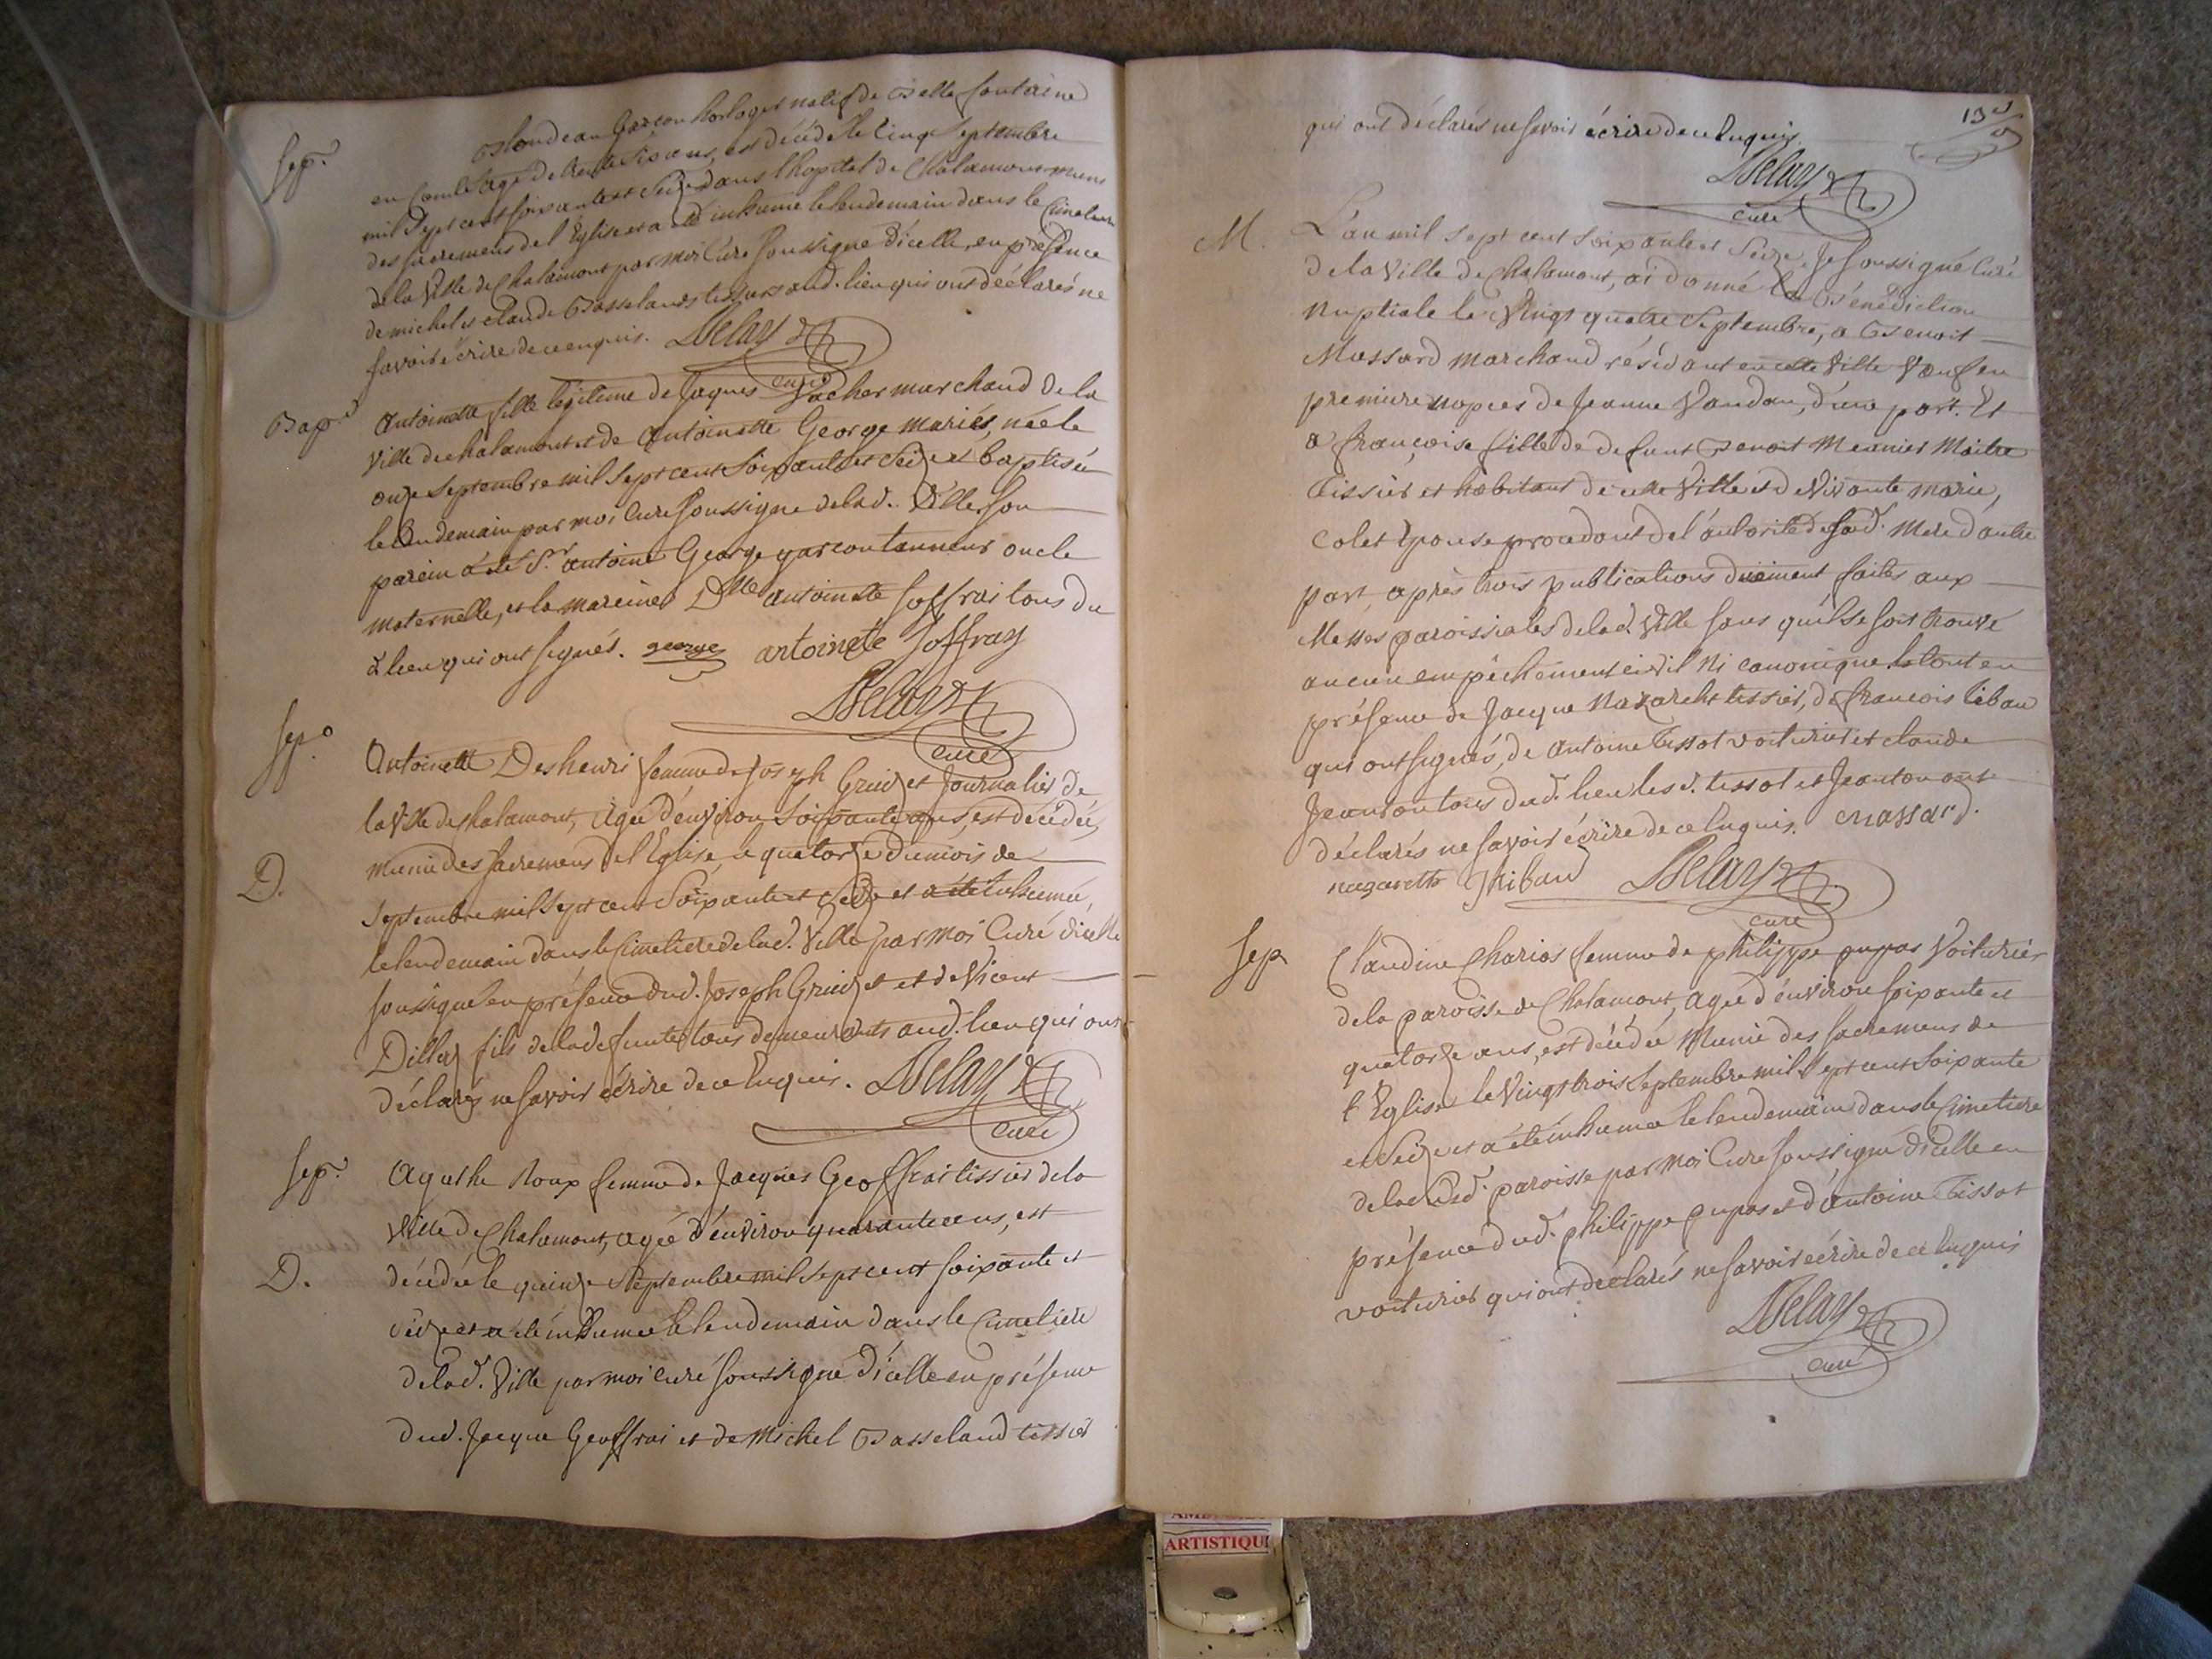 Sep.re
Blondeau garcon horloger natif de Belle fontaine
en Comté agé de trente six ans, est décédé le cinq Septembre
mil sept cent soixante et seize dans l'hopital de Chalamont muni
des sacremens de l'Eglise et a été inhumé le lendemain dans le Cimetiere
de la Ville de Chalamont par moi Curé soussigné d'icelle, en présence
de michel et claude Basseland tissiers aud. lieu qui ont déclarés ne
savoir écrire de ce enquis. Delay
curé
Bap.e
Antoinette fille légitime de Jaques Vacher marchand de la
Ville de chalamont et de Antoinette George mariés, née le
onze septembre mil sept cent soixante et seize et baptisée
le lendemain par moi Curé soussigné de lad. Ville, son
parein a été S.r antoine George garcon tanneur oncle
maternelle, et la mareine D.lle antoinette Joffrai tous du
d. lieu qui ont signés. george antoinete Joffray
Delay
curé
Sep.e
Antoinette Deshenri femme de Joseph Gruizet Journalier de
la Ville de chalamont, agée d'environ soixante ans, est décédée
D.
munie des sacremens de l'Eglise le quatorze du mois de
septembre mil sept cent soixante et seize et a été inhumée,
le lendemain dans le Cimetiere de lad. Ville par moi Curé d'icelle
soussigné en présence dud. Joseph Gruizet et de Vicent
fils de la defunte tous demeurants aud. lieu qui ont
déclarés ne savoir écrire de ce Enquis. Delay
curé
Sep.e
Agathe Roux femme de Jacques Geoffrai tissier de la
Ville de Chalamont, agée d'environ quarante ans, est
D.
décédée le quinze Septembre mil sept cent soixante et
seize et a été inhumée le lendemain dans le Cimetiere
de lad. Ville par moi Curé soussigné d'icelle en présence
dud. Jacque Geoffrai et de Michel Basseland tissier
13
qui ont déclarés ne savoir écrire de ce Enquis
Delay
curé
M.
L'an mil sept cent soixante et seize, Je soussigné Curé
de la Ville de Chalamont, ai donné la Bénédiction
Nuptiale le Vingt quatre Septembre, a Benoit
Massard marchand résidant en cette Ville Veuf en
premiere nopces de Jeanne Vaudan, d'une part. Et
a françoise fille de defunt Benoit Meunier Maitre
Tissier et habitant de cette Ville et de Vivante marie,
Colet Epouse procedant de l'autorité de sad. Mere d'autre
part, après trois publications duement faites aux
Messes paroissiales de lad. Ville sans qu'il se soit trouvé
aucun empêchement civil Ni canonique le tout en
présence de Jacque Nazareth tissier, de francois tibau
qui ont signés, de Antoine Tissot voiturier et claude
Jeanton tous dud. lieu les d. tissot et Jeanton ont
déclarés ne savoir écrire de ce Enquis. Massard.
nazareth Thibaud Delay
curé
Sep.
Claudine Charios femme de philippe pupas Voiturier
de la paroisse de Chalamont, agée d'environ soixante et
quatorze ans, est décédée Munie des sacremens de
l'Eglise le Vingt trois Septembre mil sept cent soixante
et Seize et a été inhumée le lendemain dans le Cimetiere
de lad. paroisse par moi Curé soussigné d'icelle en
présence dud. philippe pupas et d'antoine Tissot
voiturier qui ont déclarés ne savoir écrire de ce Enquis
Delay
curé
ARTISTIQU